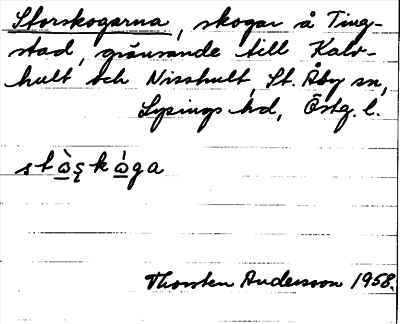 Storskogarna, skogar å Ting-
stad, gränsande till Kalv-
hult och Nisshult, St. Åby sn,
Lysings hd, Östg. l.
stɷ̀s̨kɷ́ga
Thorsten Andersson 1958.